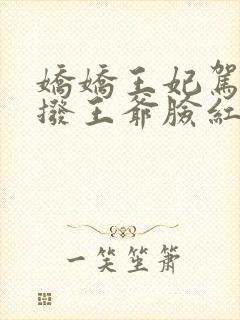 嬌嬌王妃駕
撥王爺臉紅
一笑笙簫